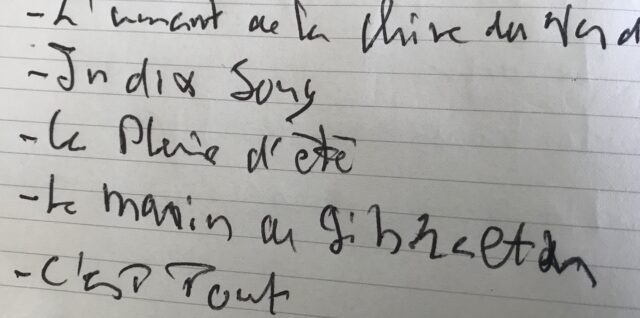 - L'amant de la Chine du Nord
- India Song
- La Pluie d'été
- Le marin de Gibraltar
- C'est Tout